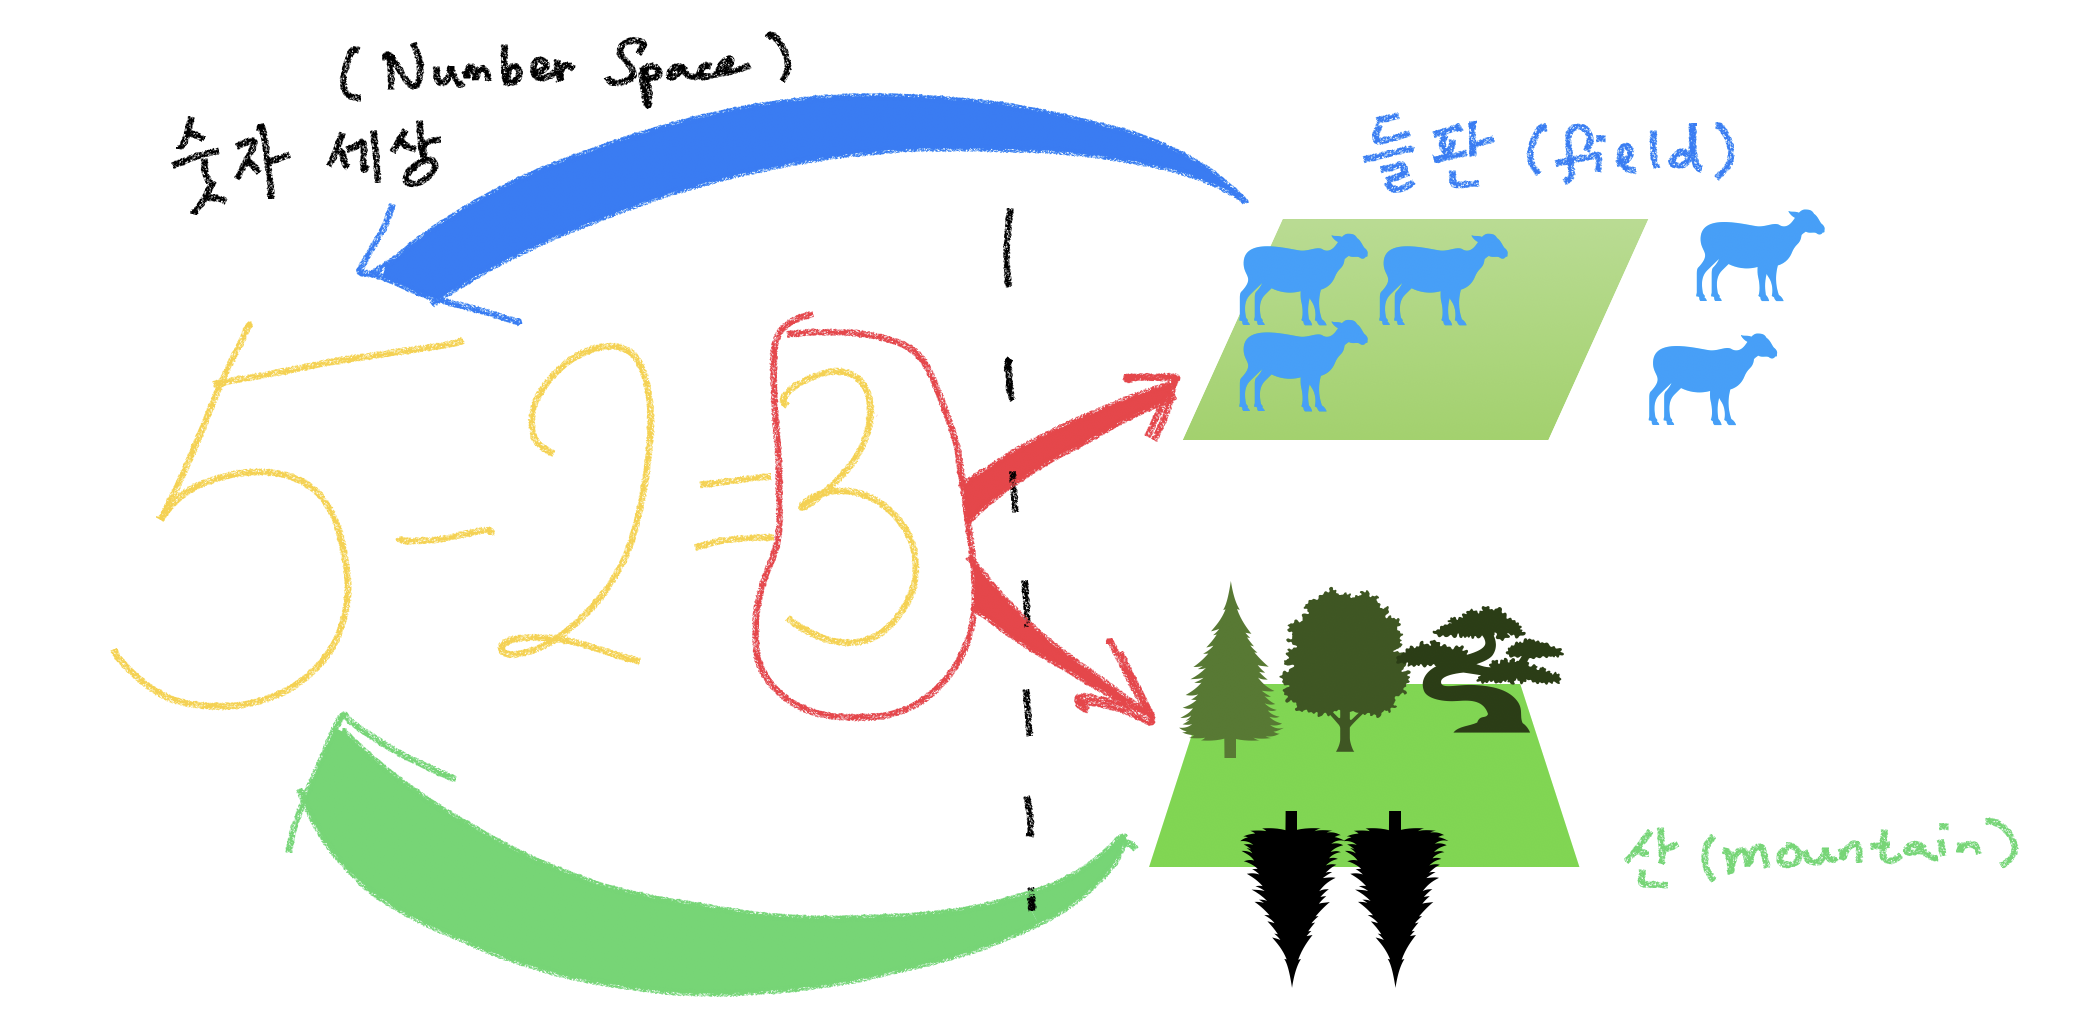 (Number Space)
숫자 세상
들판 (field)
5 - 2 = 3
산 (mountain)